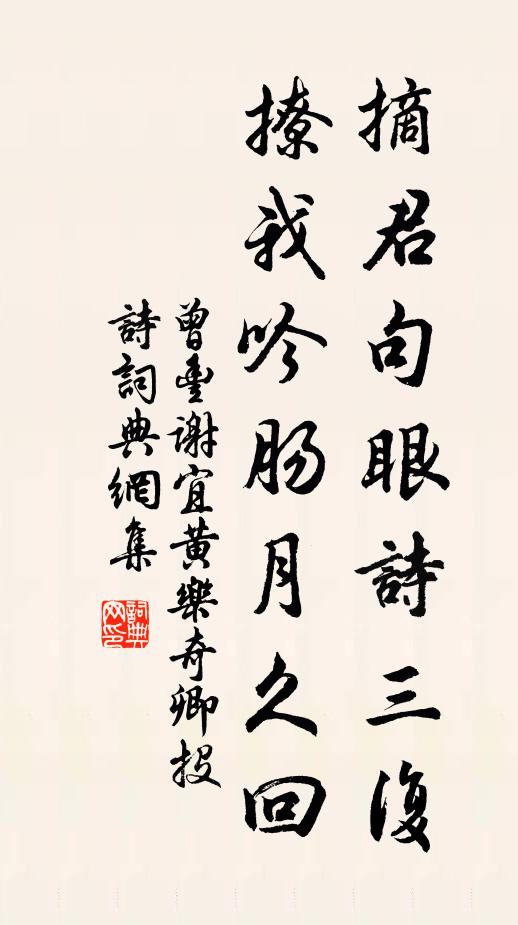 摘君句眼詩三復
撩我吟肠月久回
曾豊谢宜黄樂奇卿投
詩詞典網集
詞典网印